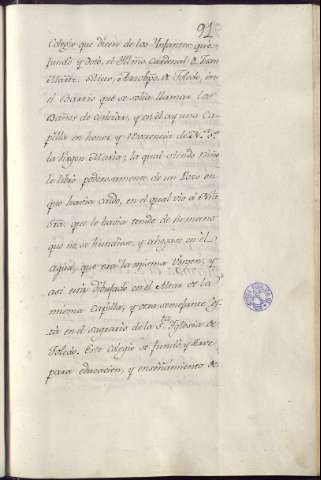 91
Colegio que dicen de los Ynfantes que
fundó y Dotó, el Illmo Cardenal D. Juan
Martz. Siliceo, Arzobpo. de Toledo, en
el Barrio que se solia llamar los
Baños de, y en él ay una Ca-
pilla en honor, y Reverencia de N.ª S.ª
la Virgen Maria; la qual siendo niño
le libró poderosamente de un Pozo en
que havia caido, en el qual vió á Nra
Sra. que le havia tenido de la mano
que no se hundiese, y ahogase en él
agua, que era la misma Virgen, y
asi está dibujado en el Altar de la
misma Capilla, y otra semejante es-
tá en el sagrario de la S.ta Yglesia de
Toledo. Este Colegio se fundó, y hace
para educacion, y enseñamiento de